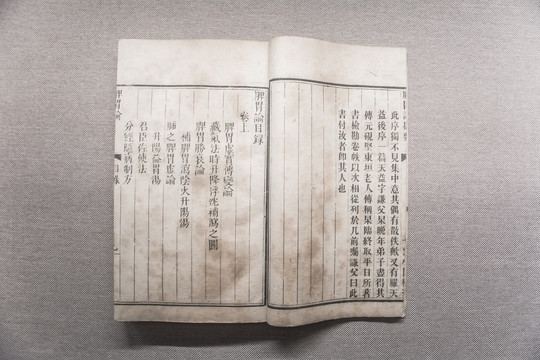 此序獨不見集中意其偶有散佚飲又有羅天
益後序一篇天益字謙父杲晚年弟子盡得其
傳元硯堅東垣老人傳稱杲臨終取平日所著
書檢勘卷帙以次相從列於几前囑謙父曰此
書付汝者即其人也
脾胃論目錄
卷上
脾胃虛實傳變論
藏氣法時升降浮沈補瀉之圖
脾胃勝衰論
補脾胃瀉陰火升陽湯
肺之脾胃虛論
升陽益胃湯
君臣佐使法
分經隨病制方
脾胃論
目錄